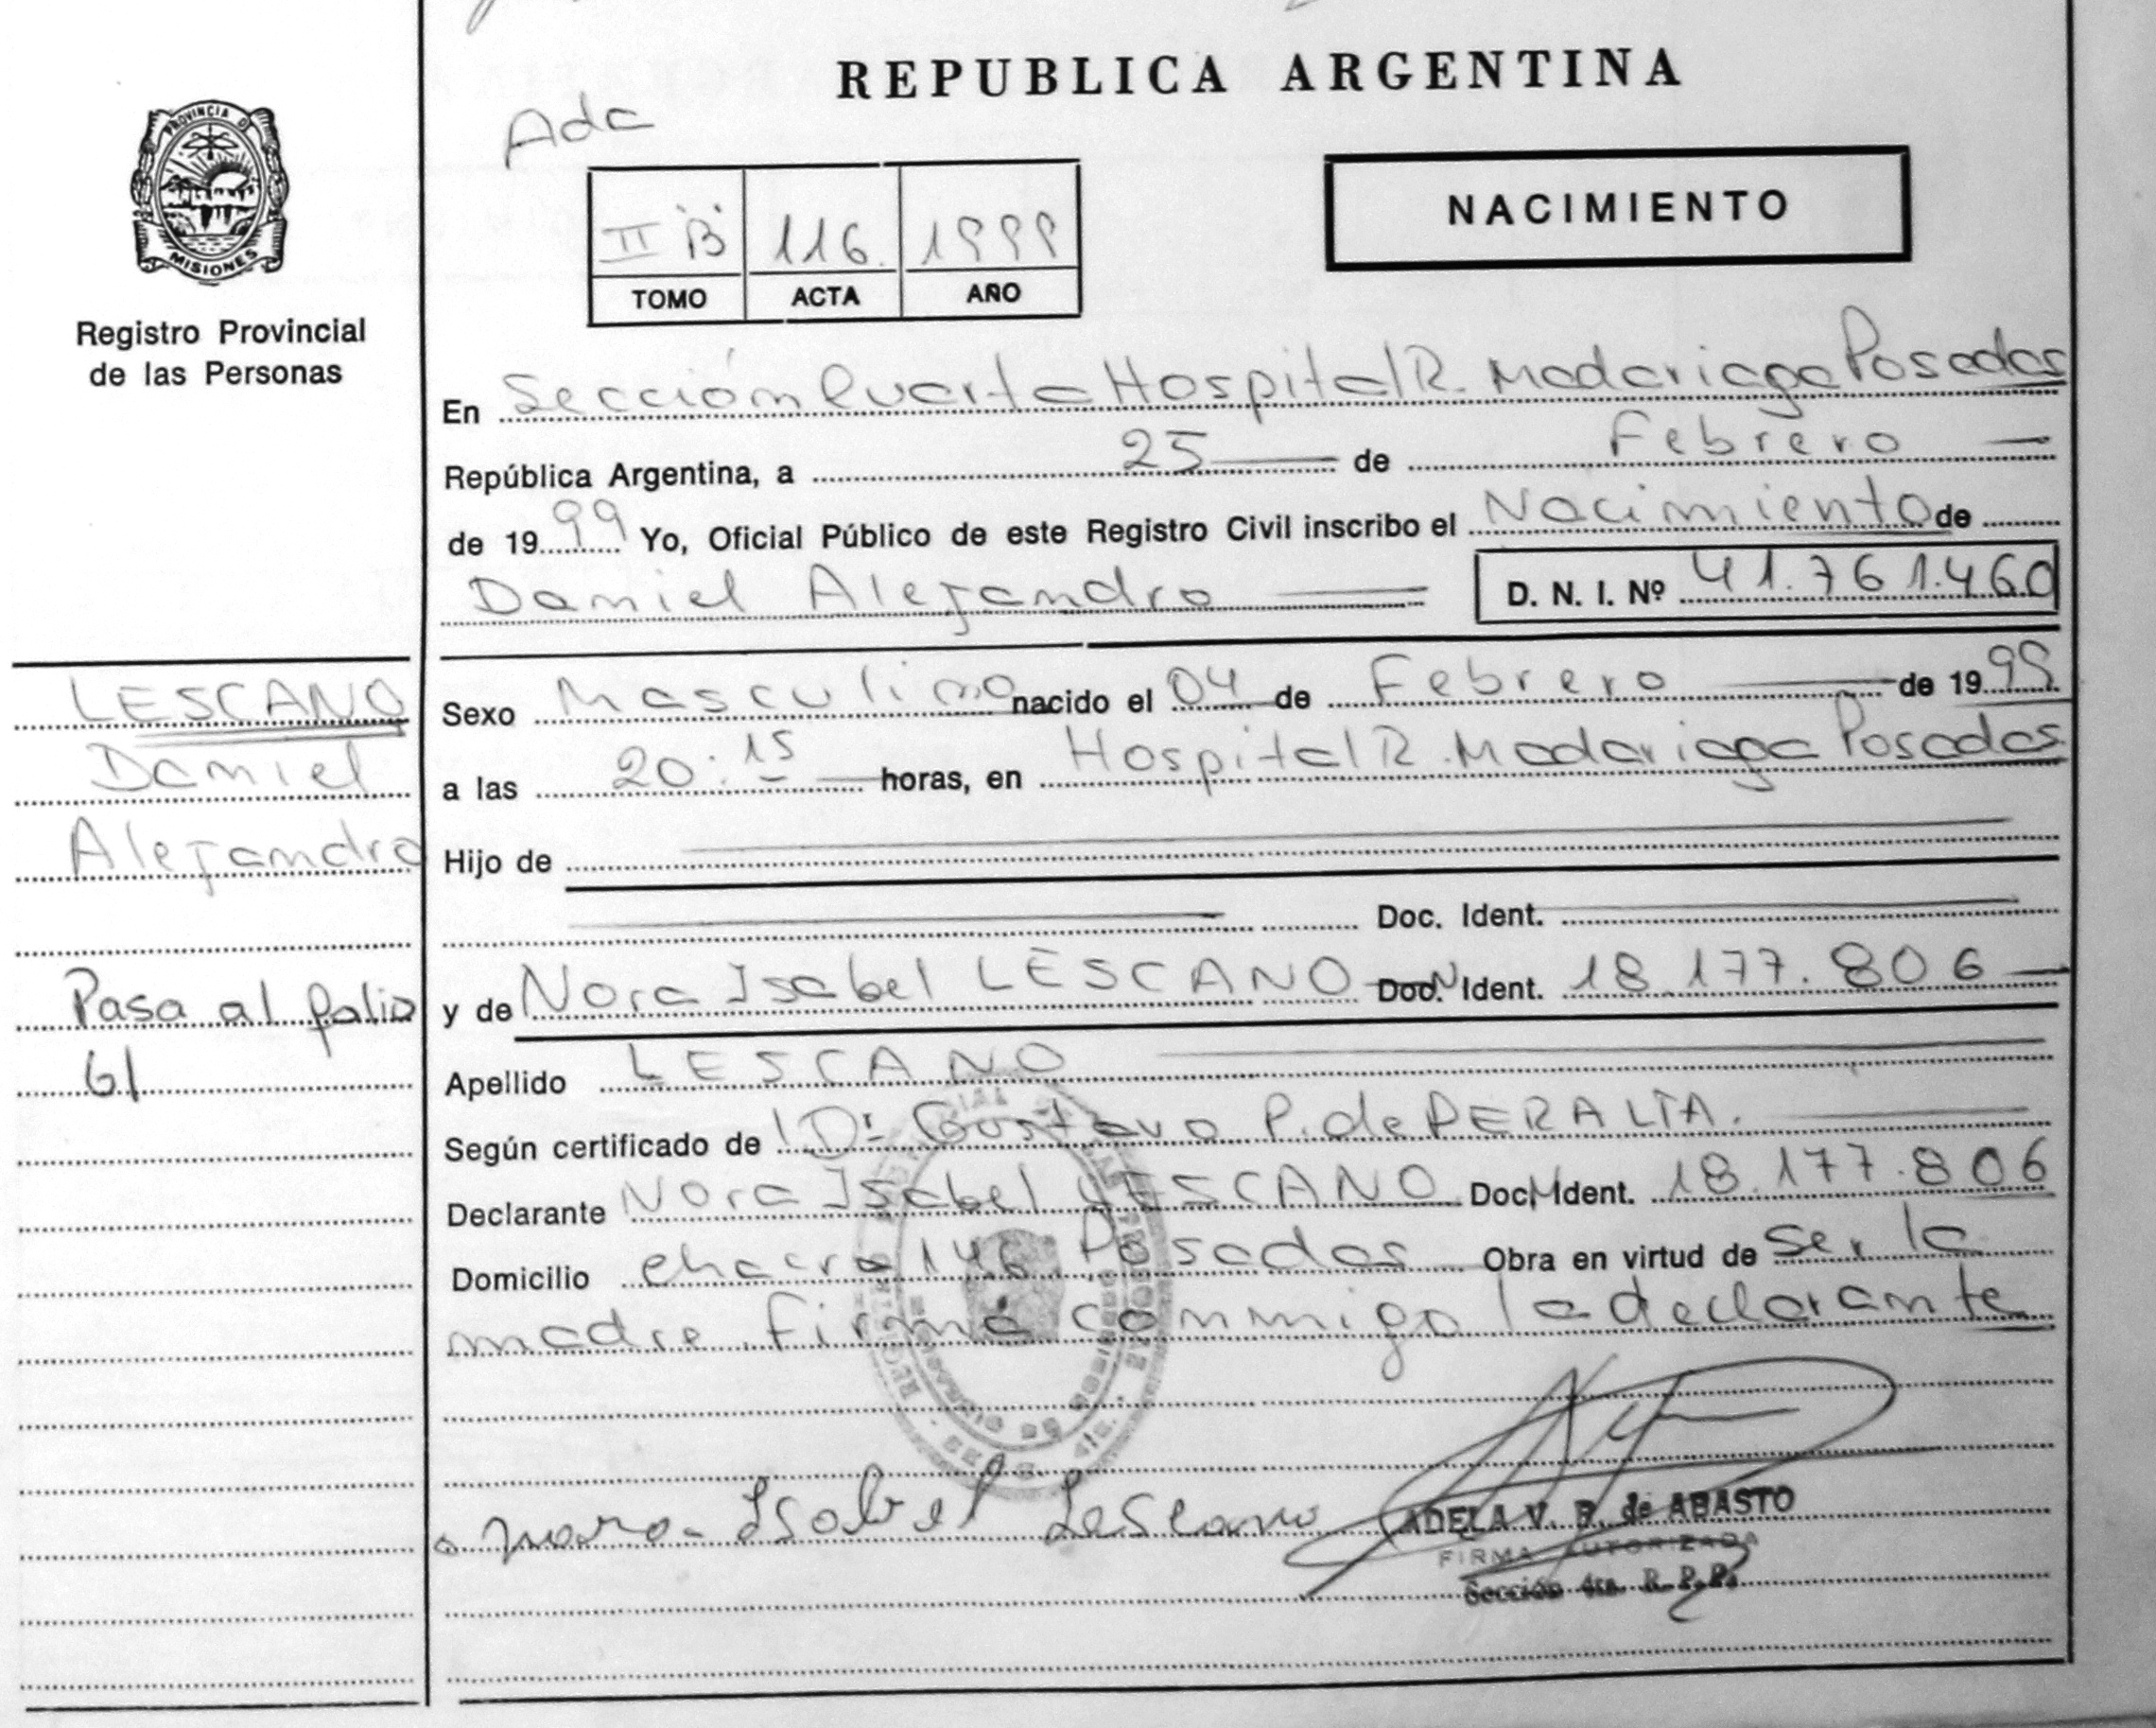 REPUBLICA ARGENTINA
Ada
PROVINCIA D
MISIONES
Registro Provincial
de las Personas
II "B" 116. 1999
TOMO ACTA AÑO
NACIMIENTO
En Sección Cuarta Hospital R. Madariaga Posadas
República Argentina, a 25 de Febrero
de 1999 Yo, Oficial Público de este Registro Civil inscribo el Nacimiento de
Daniel Alejandro D. N. I. Nº 41.761.460
LESCANO
Daniel
Alejandro
Pasa al folio
61
Sexo Masculino nacido el 04 de Febrero de 1999
a las 20:15 horas, en Hospital R. Madariaga Posadas
Hijo de
Doc. Ident.
y de Nora Isabel LESCANO Doc. Ident. 18.177.806
Apellido LESCANO
Según certificado de Dr. Gustavo P. de PERALTA.
Declarante Nora Isabel LESCANO Doc. Ident. 18.177.806
Domicilio chacra 146 Posadas Obra en virtud de ser la
madre firma conmigo la declarante
Nora Isabel Lescano
ADELA V. B. de ABASTO
FIRMA AUTORIZADA
Sección 4ta. R. P. P.